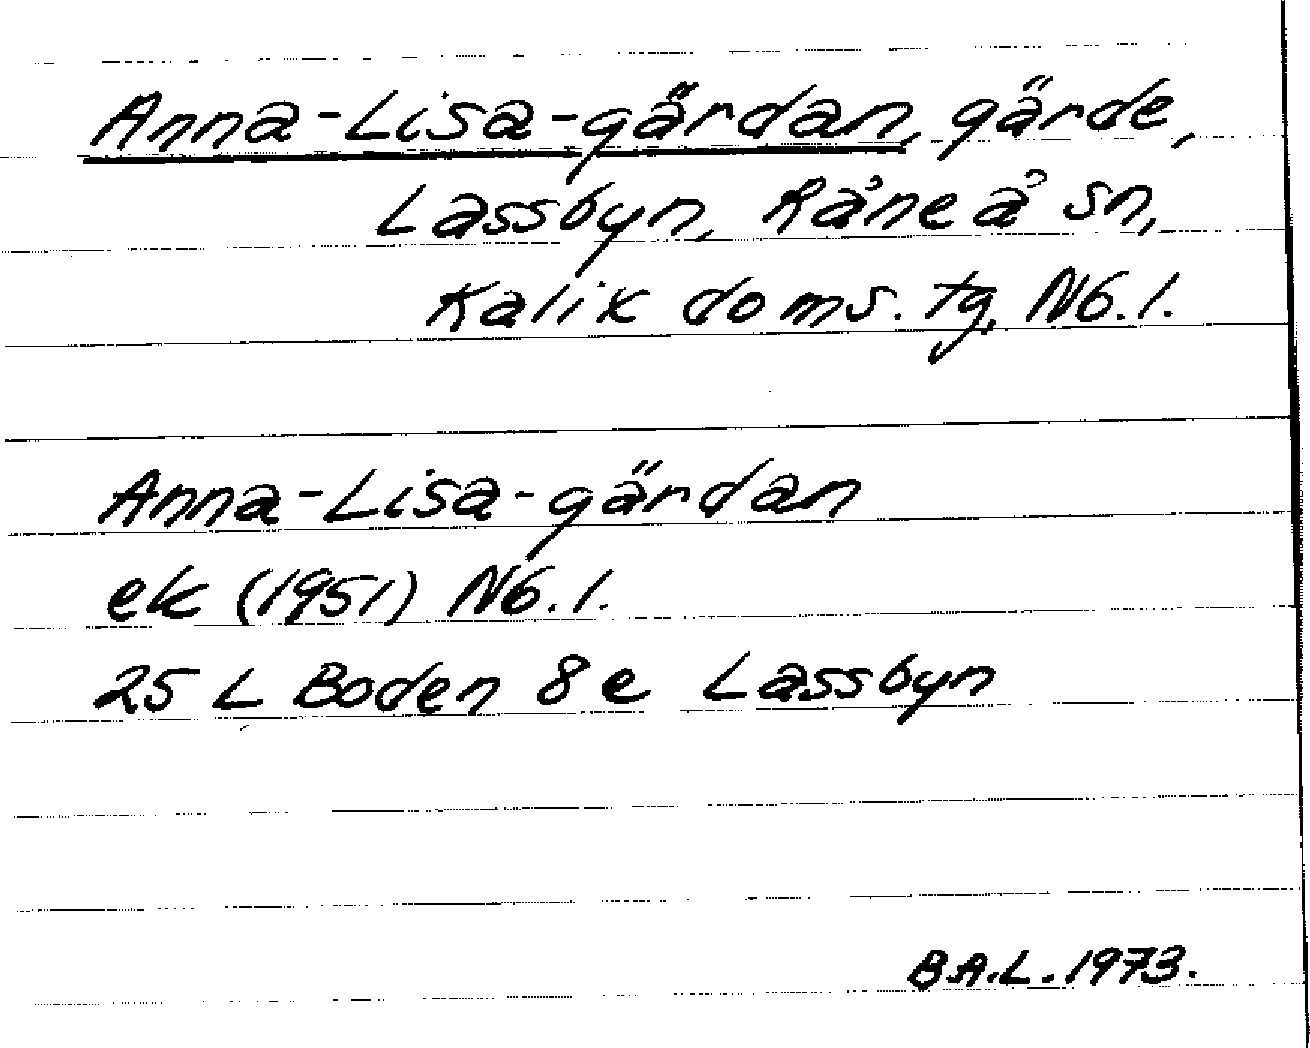 Anna-Lisa-gärdan, gärde,
Lassbyn, Råneå sn,
Kalix doms. tg, Nb.l.
Anna-Lisa-gärdan
ek (1951) Nb.l.
25 L Boden 8e Lassbyn
B.A.L. 1973.